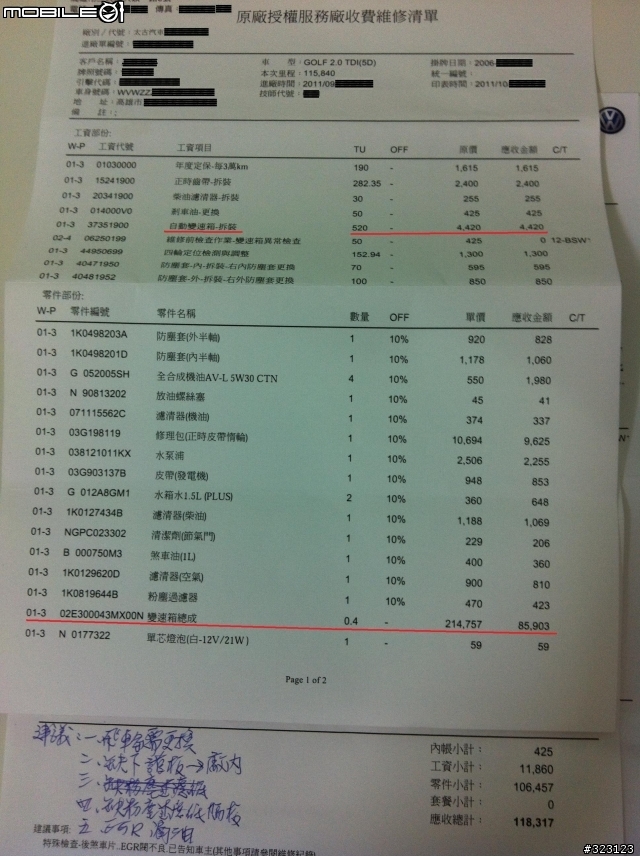 mobile01
傳真：
原廠授權服務廠收費維修清單
組別／代號：太古汽車
進廠單編號：
客戶名稱： 車 型：GOLF 2.0 TDI(5D) 掛牌日期：2006-
牌照號碼： 本次里程：115,840 統一編號：
引擎代碼： 進廠時間：2011/09 印表時間：2011/10/
車身號碼：WVWZZ 技師代號：
地 址：高雄市
備 註：
工資部份:
W-P 工資代號 工資項目 TU OFF 原價 應收金額 C/T
01-3 01030000 年度定保-每3萬km 190 - 1,615 1,615
01-3 15241900 正時齒帶-拆裝 282.35 - 2,400 2,400
01-3 20341900 柴油濾清器-拆裝 30 - 255 255
01-3 014000V0 剎車油-更換 50 - 425 425
01-3 37351900 自動變速箱-拆裝 520 - 4,420 4,420
02-4 06250199 維修前檢查作業-變速箱異常檢查 50 - 425 0 12-BSW*
01-3 44950699 四輪定位檢測與調整 152.94 - 1,300 1,300
01-3 40471950 防塵套-內-拆裝-右內防塵套更換 70 - 595 595
01-3 40481952 防塵套-外-拆裝-右外防塵套更換 100 - 850 850
零件部份:
W-P 零件編號 零件名稱 數量 OFF 單價 應收金額 C/T
01-3 1K0498203A 防塵套(外半軸) 1 10% 920 828
01-3 1K0498201D 防塵套(內半軸) 1 10% 1,178 1,060
01-3 G 052005SH 全合成機油AV-L 5W30 CTN 4 10% 550 1,980
01-3 N 90813202 放油螺絲塞 1 10% 45 41
01-3 071115562C 濾清器(機油) 1 10% 374 337
01-3 03G198119 修理包(正時皮帶惰輪) 1 10% 10,694 9,625
01-3 038121011KX 水泵浦 1 10% 2,506 2,255
01-3 03G903137B 皮帶(發電機) 1 10% 948 853
01-3 G 012A8GM1 水箱水1.5L (PLUS) 2 10% 360 648
01-3 1K0127434B 濾清器(柴油) 1 10% 1,188 1,069
01-3 NGPC023302 清潔劑(節氣門) 1 10% 229 206
01-3 B 000750M3 煞車油(1L) 1 10% 400 360
01-3 1K0129620D 濾清器(空氣) 1 10% 900 810
01-3 1K0819644B 粉塵過濾器 1 10% 470 423
01-3 02E300043MX00N 變速箱總成 0.4 - 214,757 85,903
01-3 N 0177322 單芯燈泡(白-12V/21W) 1 - 59 59
Page 1 of 2
建議：一、飛輪需更換
二、缺下護板→廠內
三、
四、缺粉塵過濾隔板
五、
內帳小計： 425
工資小計： 11,860
零件小計： 106,457
套餐小計： 0
應收總計： 118,317
建議事項:
特殊檢查-後煞車片..EGR閥不良.已告知車主(其他事項請參閱維修紀錄)
#323123